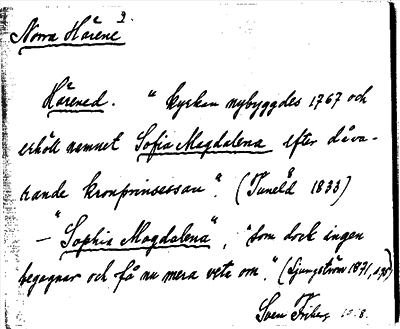 Norra Härene 2.
Härened. "Kyrkan nybyggdes 1767 och
erhöll namnet Sofia Magdalena efter dåva-
rande kronprinsessan". (Tuneld 1833)
— "Sophia Magdalena", "som dock ingen
begagnar och få nu mera veta om." (Ljungström 1871, s.
Sven